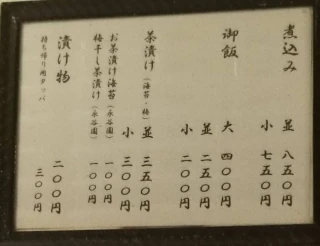 煮込み 並 八五〇円
小 七五〇円
御飯 大 四〇〇円
並 二五〇円
小 二〇〇円
茶漬け（海苔・梅） 並 三五〇円
小 三〇〇円
お茶漬け海苔（永谷園） 一〇〇円
梅干し茶漬け（永谷園） 一〇〇円
漬け物 二〇〇円
持ち帰り用タッパ 三〇〇円